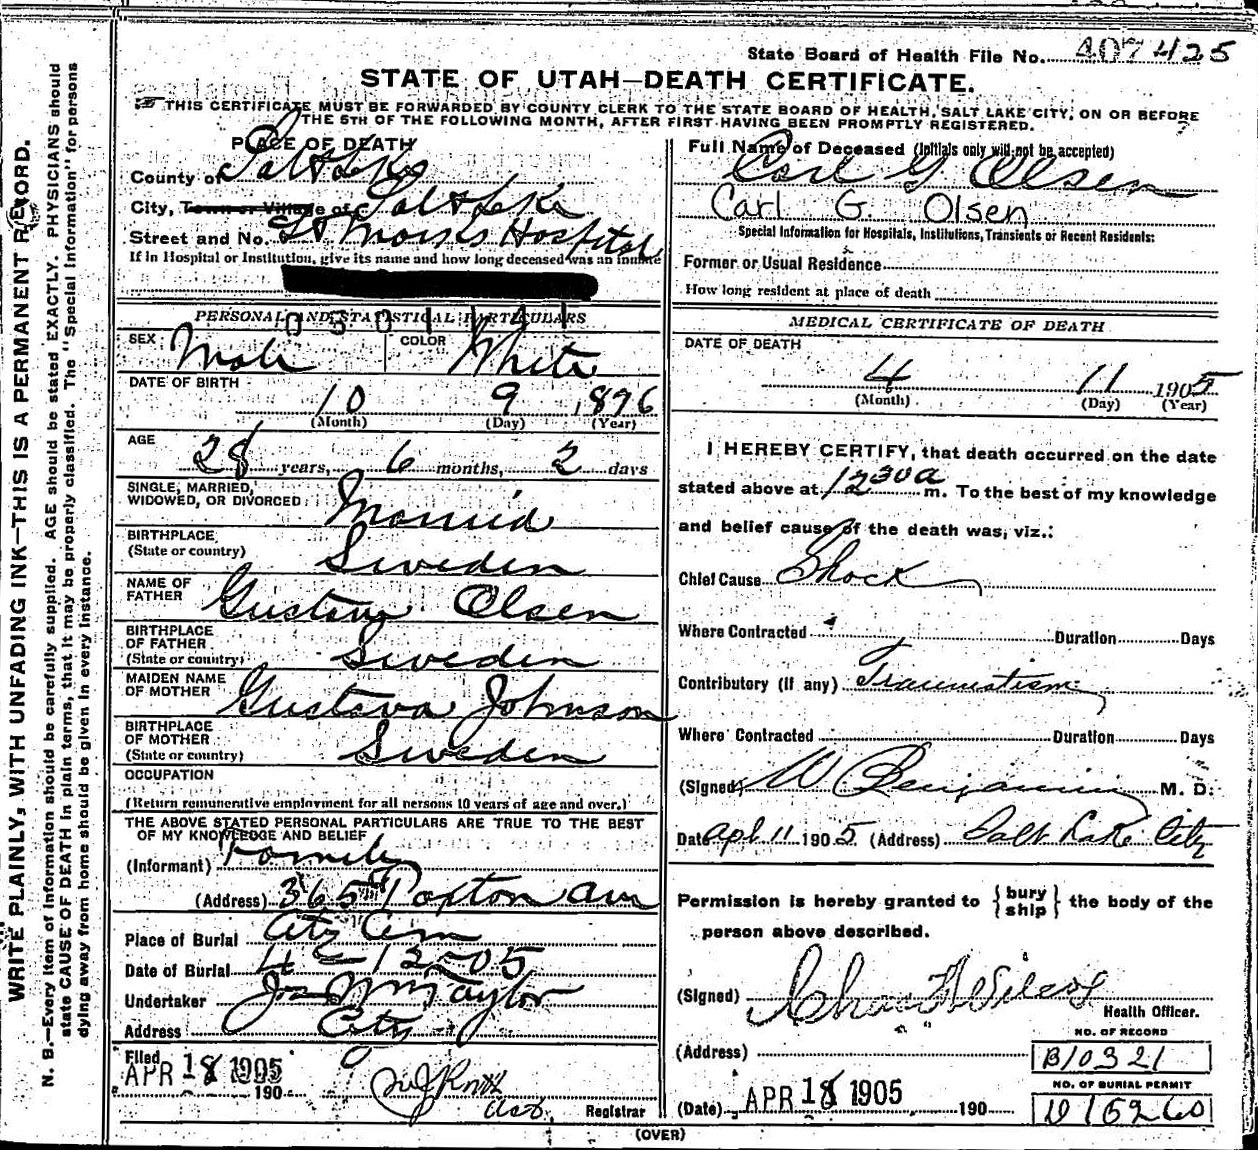 State Board of Health File No. 407425
STATE OF UTAH—DEATH CERTIFICATE.
THIS CERTIFICATE MUST BE FORWARDED BY COUNTY CLERK TO THE STATE BOARD OF HEALTH, SALT LAKE CITY, ON OR BEFORE
THE 5TH OF THE FOLLOWING MONTH, AFTER FIRST HAVING BEEN PROMPTLY REGISTERED.
PLACE OF DEATH
County of Salt Lake
City, Town or Village of Salt Lake
Street and No. St Marks Hospital
If in Hospital or Institution, give its name and how long deceased was an inmate
0501141
PERSONAL AND STATISTICAL PARTICULARS
SEX Male COLOR White
DATE OF BIRTH
10 9 1876
(Month) (Day) (Year)
AGE
28 years, 6 months, 2 days
SINGLE, MARRIED,
WIDOWED, OR DIVORCED Married
BIRTHPLACE
(State or country) Sweden
NAME OF
FATHER Gustav Olsen
BIRTHPLACE
OF FATHER
(State or country) Sweden
MAIDEN NAME
OF MOTHER Gustava Johnson
BIRTHPLACE
OF MOTHER
(State or country) Sweden
OCCUPATION
(Return remunerative employment for all persons 10 years of age and over.)
THE ABOVE STATED PERSONAL PARTICULARS ARE TRUE TO THE BEST
OF MY KNOWLEDGE AND BELIEF
(Informant) Family
(Address) 365 Paxton Ave
Place of Burial City Cem
Date of Burial 4-12-05
Undertaker Jos Wm Taylor
Address City
Filed
APR 18 1905 190
Registrar
Full Name of Deceased (Initials only will not be accepted)
Carl G Olsen
Carl G. Olsen
Special Information for Hospitals, Institutions, Transients or Recent Residents:
Former or Usual Residence
How long resident at place of death
MEDICAL CERTIFICATE OF DEATH
DATE OF DEATH
4 11 1905
(Month) (Day) (Year)
I HEREBY CERTIFY, that death occurred on the date
stated above at 12 30 a m. To the best of my knowledge
and belief cause of the death was, viz.:
Chief Cause Shock
Where Contracted Duration Days
Contributory (If any) Traumatism
Where Contracted Duration Days
(Signed) W Benjamin M. D.
Date Apl 11 1905 (Address) Salt Lake City
Permission is hereby granted to {bury ship} the body of the
person above described.
(Signed)
Health Officer.
NO. OF RECORD
(Address) B10321
NO. OF BURIAL PERMIT
(Date) APR 18 1905 190 D15260
(OVER)
WRITE PLAINLY, WITH UNFADING INK—THIS IS A PERMANENT RECORD.
N. B.—Every item of information should be carefully supplied. AGE should be stated EXACTLY. PHYSICIANS should
state CAUSE OF DEATH in plain terms, that it may be properly classified. The "Special Information" for persons
dying away from home should be given in every instance.